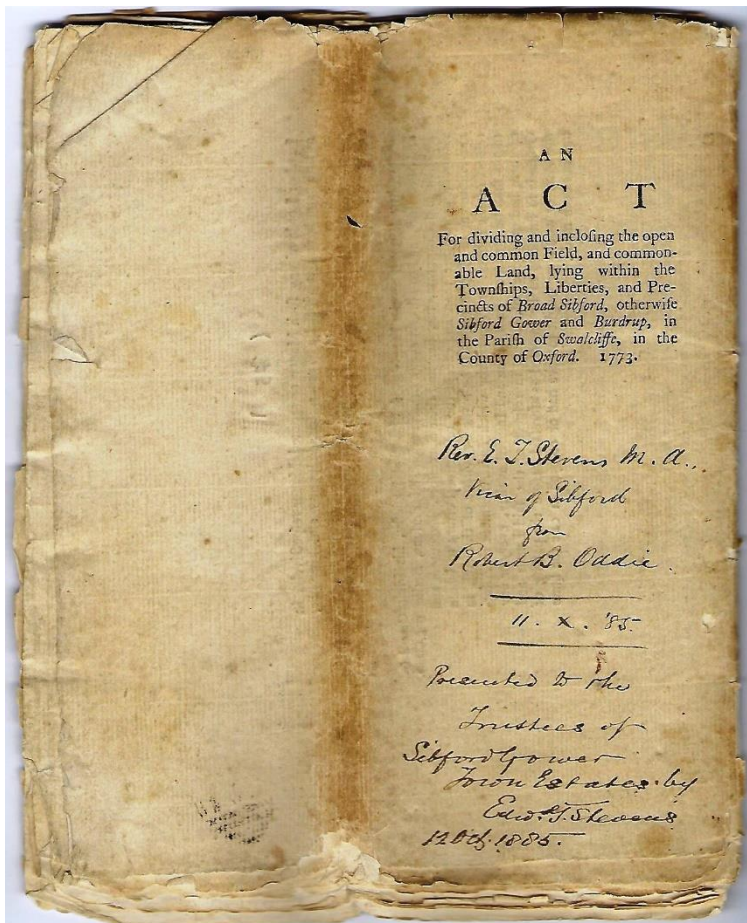 AN
ACT
For dividing and incloſing the open
and common Field, and common-
able Land, lying within the
Townſhips, Liberties, and Pre-
cincts of Broad Sibford, otherwiſe
Sibford Gower and Burdrup, in
the Pariſh of Swalcliffe, in the
County of Oxford. 1773.
Rev. E. T. Stevens M. A.,
Vicar of Sibford
from
Robert B. Oddie.
11. X. '85.
Presented to the
Trustees of
Sibford Gower
Town Estates by
Edw. T. Stevens
12 Oct. 1885.